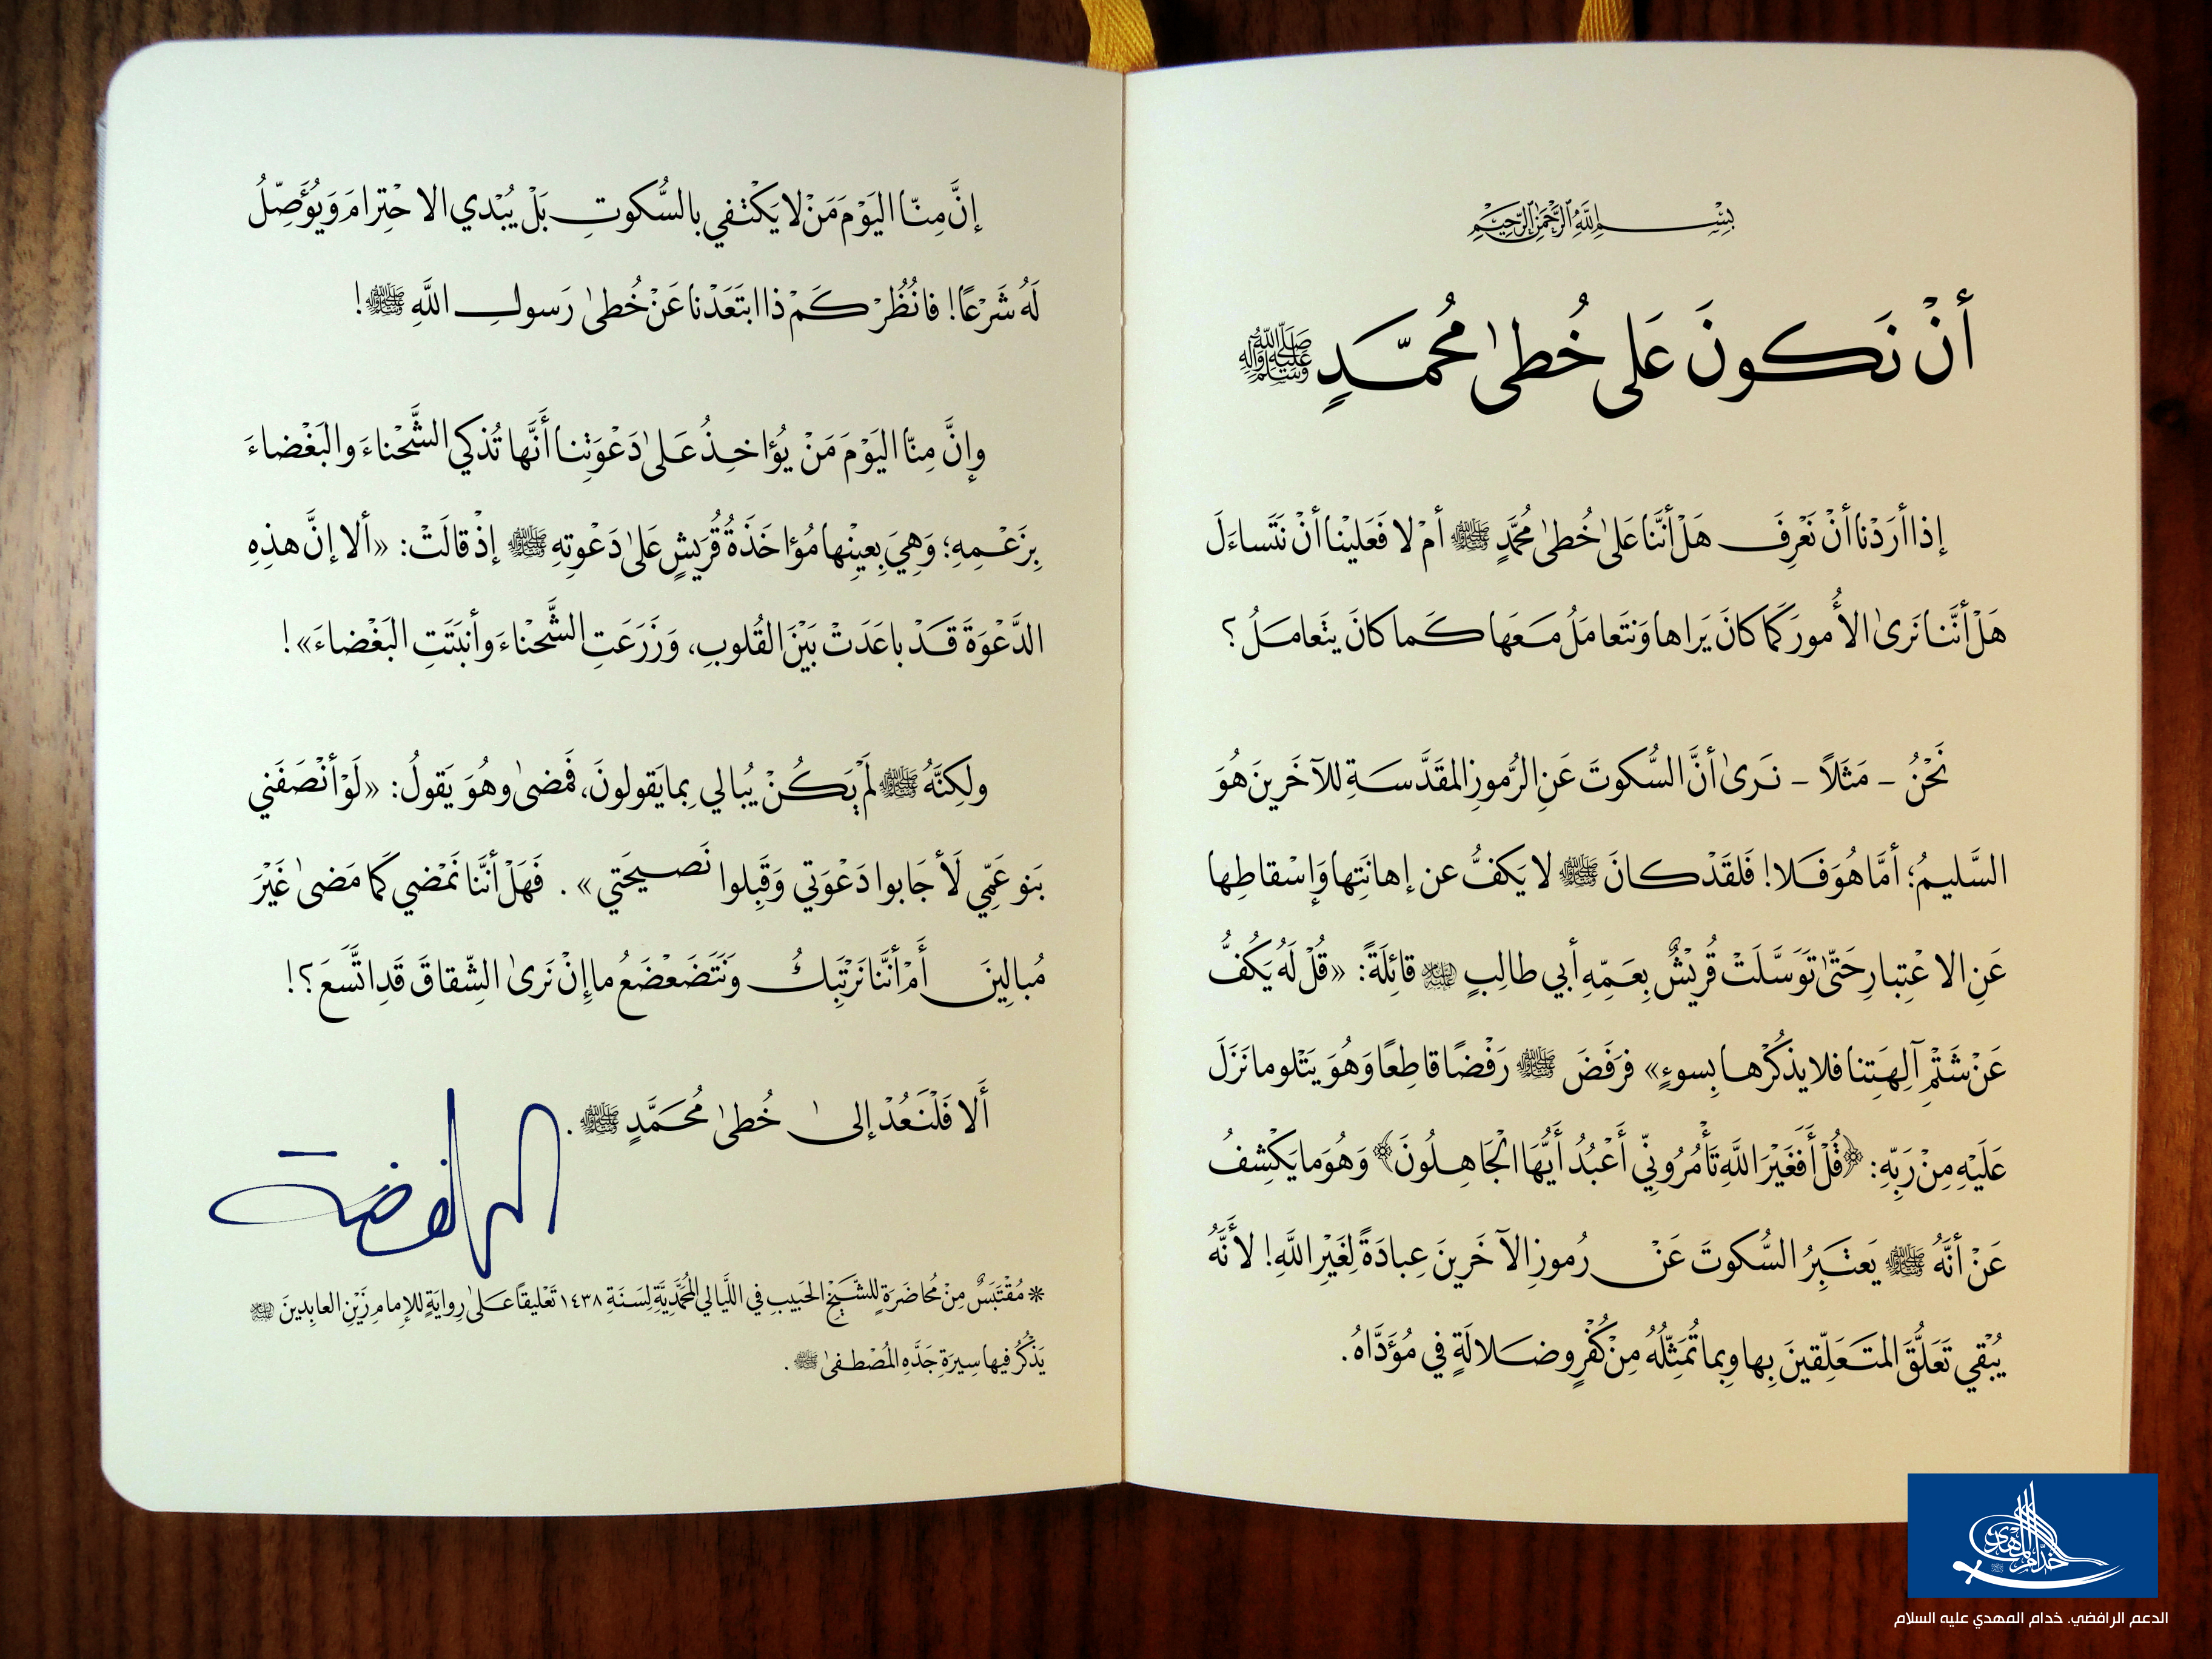 بِسْمِ اللَّهِ الرَّحْمَٰنِ الرَّحِيمِ
أنْ نَكونَ عَلى خُطىٰ مُحمَّدٍ ﷺ
إذا أرَدْنا أنْ نَعْرِفَ هَلْ أنَّنا عَلىٰ خُطىٰ مُحمَّدٍ ﷺ أمْ لا فَعَلينْا أنْ نَتَساءَلَ
هَلْ أنَّنا نَرىٰ الأُمورَ كَما كانَ يَراها وَنتَعامَلُ مَعَها كَما كانَ يتَعامَلُ؟
نَحْنُ - مَثَلاً - نَرىٰ أنَّ السُّكوتَ عَنِ الرُّموزِ المقَدَّسَةِ للآخَرينَ هُوَ
السَّليمُ؛ أمَّا هُوَ فَلا! فَلقَدْ كانَ ﷺ لا يَكفُّ عن إهانَتِها وَإسْقاطِها
عَنِ الاعْتِبارِ حَتّىٰ تَوَسَّلَتْ قُريْشٌ بِعَمِّهِ أبي طالِبٍ عليه السلام قائِلَةً: «قُلْ لَهُ يَكُفُّ
عَنْ شَتْمِ آلِهَتِنا فلا يذكُرْها بِسوءٍ» فرَفَضَ ﷺ رَفْضًا قاطِعًا وَهُوَ يَتْلو ما نَزَلَ
عَلَيْهِ مِنْ رَبِّهِ: ﴿قُلْ أَفَغَيْرَ اللَّهِ تَأْمُرُونِّي أَعْبُدُ أَيُّهَا الْجَاهِلُونَ﴾ وَهُوَ ما يَكْشِفُ
عَنْ أنَّهُ ﷺ يَعتْبَِرُ السُّكوتَ عَنْ رُموزِ الآخَرينَ عِبادَةً لِغَيْرِ اللَّهِ! لأَنَّهُ
يُبْقي تَعَلُّقَ المتَعَلِّقينَ بِها وبِما تُمَثِّلُهُ مِنْ كُفْرٍ وضَلالَةٍ في مُؤَدَّاهُ.
إنَّ مِنّا اليَوْمَ مَنْ لا يَكْتْفي بالسُّكوتِ بَلْ يُبْدي الاحْتِرامَ وَيُؤَصِّلُ
لَهُ شَرْعًا! فانُظُرْ كَمْ ذا ابتَعَدْنا عَنْ خُطىٰ رَسولِ اللَّهِ ﷺ!
وإنَّ مِنّا اليَوْمَ مَنْ يُؤاخِذُ عَلىٰ دَعْوَتِنا أنَّها تُذكي الشَّحْناءَ والبَغْضاءَ
بِزَعْمِهِ؛ وَهِيَ بِعينِْها مُؤاخَذَةُ قُرَيشٍ عَلىٰ دَعْوتِهِ ﷺ إذْ قالَتْ: «ألا إنَّ هذِهِ
الدَّعْوَةَ قَدْ باعَدَتْ بَيْنَ القُلوبِ، وَزَرَعَتِ الشَّحْناءَ وأنبَتَتِ البَغْضاءَ»!
ولَكِنَّهُ ﷺ لَمْ يَكُنْ يُبالي بِما يَقولونَ، فَمَضىٰ وهُوَ يَقولُ: «لَوْ أنْصَفَني
بَنو عَمِّي لَأجَابوا دَعْوَتي وَقَبِلوا نَصيحَتي». فَهَلْ أنَّنا نَمْضي كَما مَضىٰ غَيْرَ
مُبالِينَ أَمْ أنَّنا نَرْتَبِكُ وَنَتَضَعْضَعُ ما إنْ نَرىٰ الشِّقاقَ قَدِ اتَّسَعَ؟!
أَلا فَلْنَعُدْ إلىٰ خُطىٰ مُحَمَّدٍ ﷺ.
الرافضة
* مُقْتَبَسٌ مِنْ مُحاضَرَةٍ للشَّيْخِ الحَبيبِ في اللَّيالي المُحَمَّدِيَّةِ لِسَنَةِ ١٤٣٨ تَعْليقاً عَلىٰ رِوايَةٍ للإمامِ زَيْنِ العابِدينَ عليه السلام
يَذْكُرُ فيها سِيرَةِ جَدَّهِ المُصْطفىٰ ﷺ.
خدام المهدي
الدعم الرافضي. خدام المهدي عليه السلام